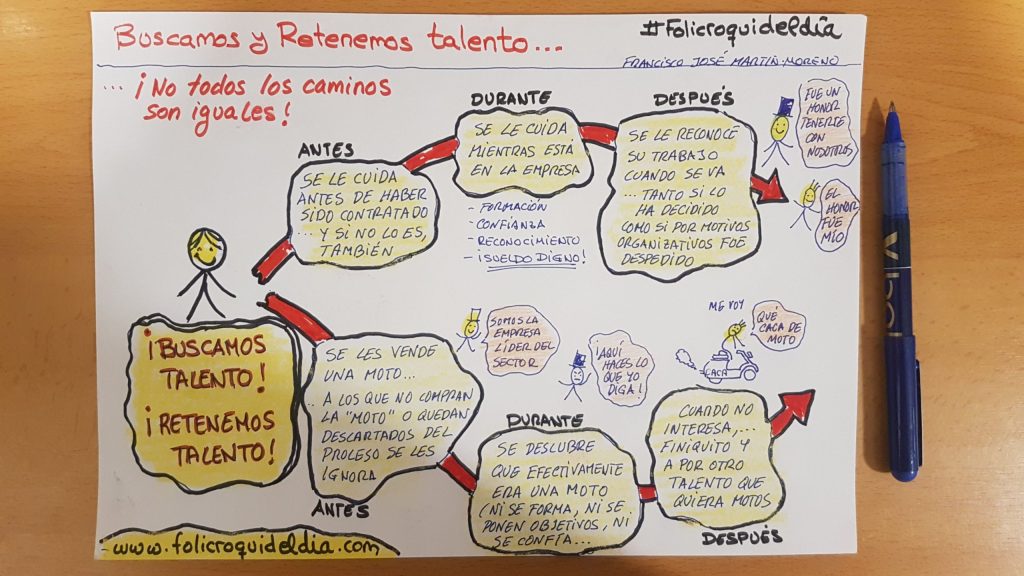 Buscamos y Retenemos talento...
#Folicroquideldía
FRANCISCO JOSÉ MARTÍN-MORENO
... ¡No todos los caminos
son iguales!
ANTES
SE LE CUIDA
ANTES DE HABER
SIDO CONTRATADO
... Y SI NO LO ES,
TAMBIÉN
DURANTE
SE LE CUIDA
MIENTRAS ESTÁ
EN LA EMPRESA
- FORMACIÓN
- CONFIANZA
- RECONOCIMIENTO
- ¡SUELDO DIGNO!
DESPUÉS
SE LE RECONOCE
SU TRABAJO
CUANDO SE VA
... TANTO SI LO
HA DECIDIDO
COMO SI POR MOTIVOS
ORGANIZATIVOS FUE
DESPEDIDO
FUE UN
HONOR
TENERTE
CON
NOSOTROS
EL
HONOR
FUE
MÍO
¡BUSCAMOS
TALENTO!
¡RETENEMOS
TALENTO!
SE LES VENDE
UNA MOTO...
.. A LOS QUE NO COMPRAN
LA "MOTO" O QUEDAN
DESCARTADOS DEL
PROCESO SE LES
IGNORA
ANTES
SOMOS LA
EMPRESA
LÍDER DEL
SECTOR
¡AQUÍ
HACES LO
QUE YO
DIGA!
DURANTE
SE DESCUBRE
QUE EFECTIVAMENTE
ERA UNA MOTO
(NI SE FORMA, NI SE
PONEN OBJETIVOS, NI
SE CONFÍA...
ME VOY
QUÉ
CACA DE
MOTO
CACA
CUANDO NO
INTERESA,...
FINIQUITO Y
A POR OTRO
TALENTO QUE
QUIERA MOTOS
DESPUÉS
www.folicroquideldia.com